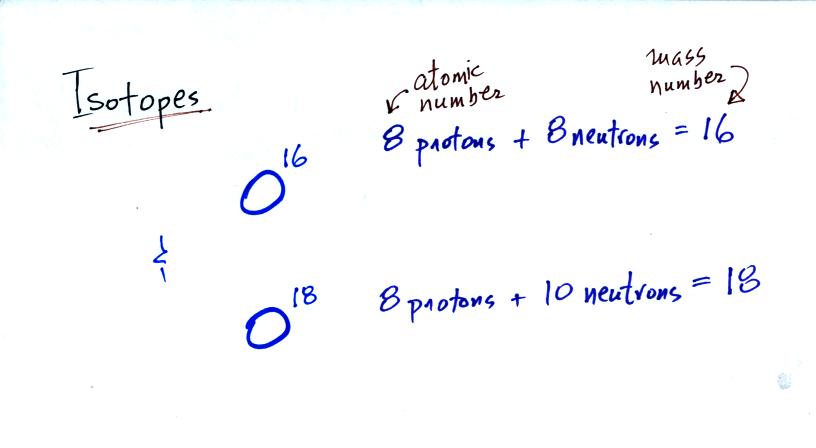 Isotopes
atomic
number
mass
number
8 protons + 8 neutrons = 16
O16
&
O18
8 protons + 10 neutrons = 18